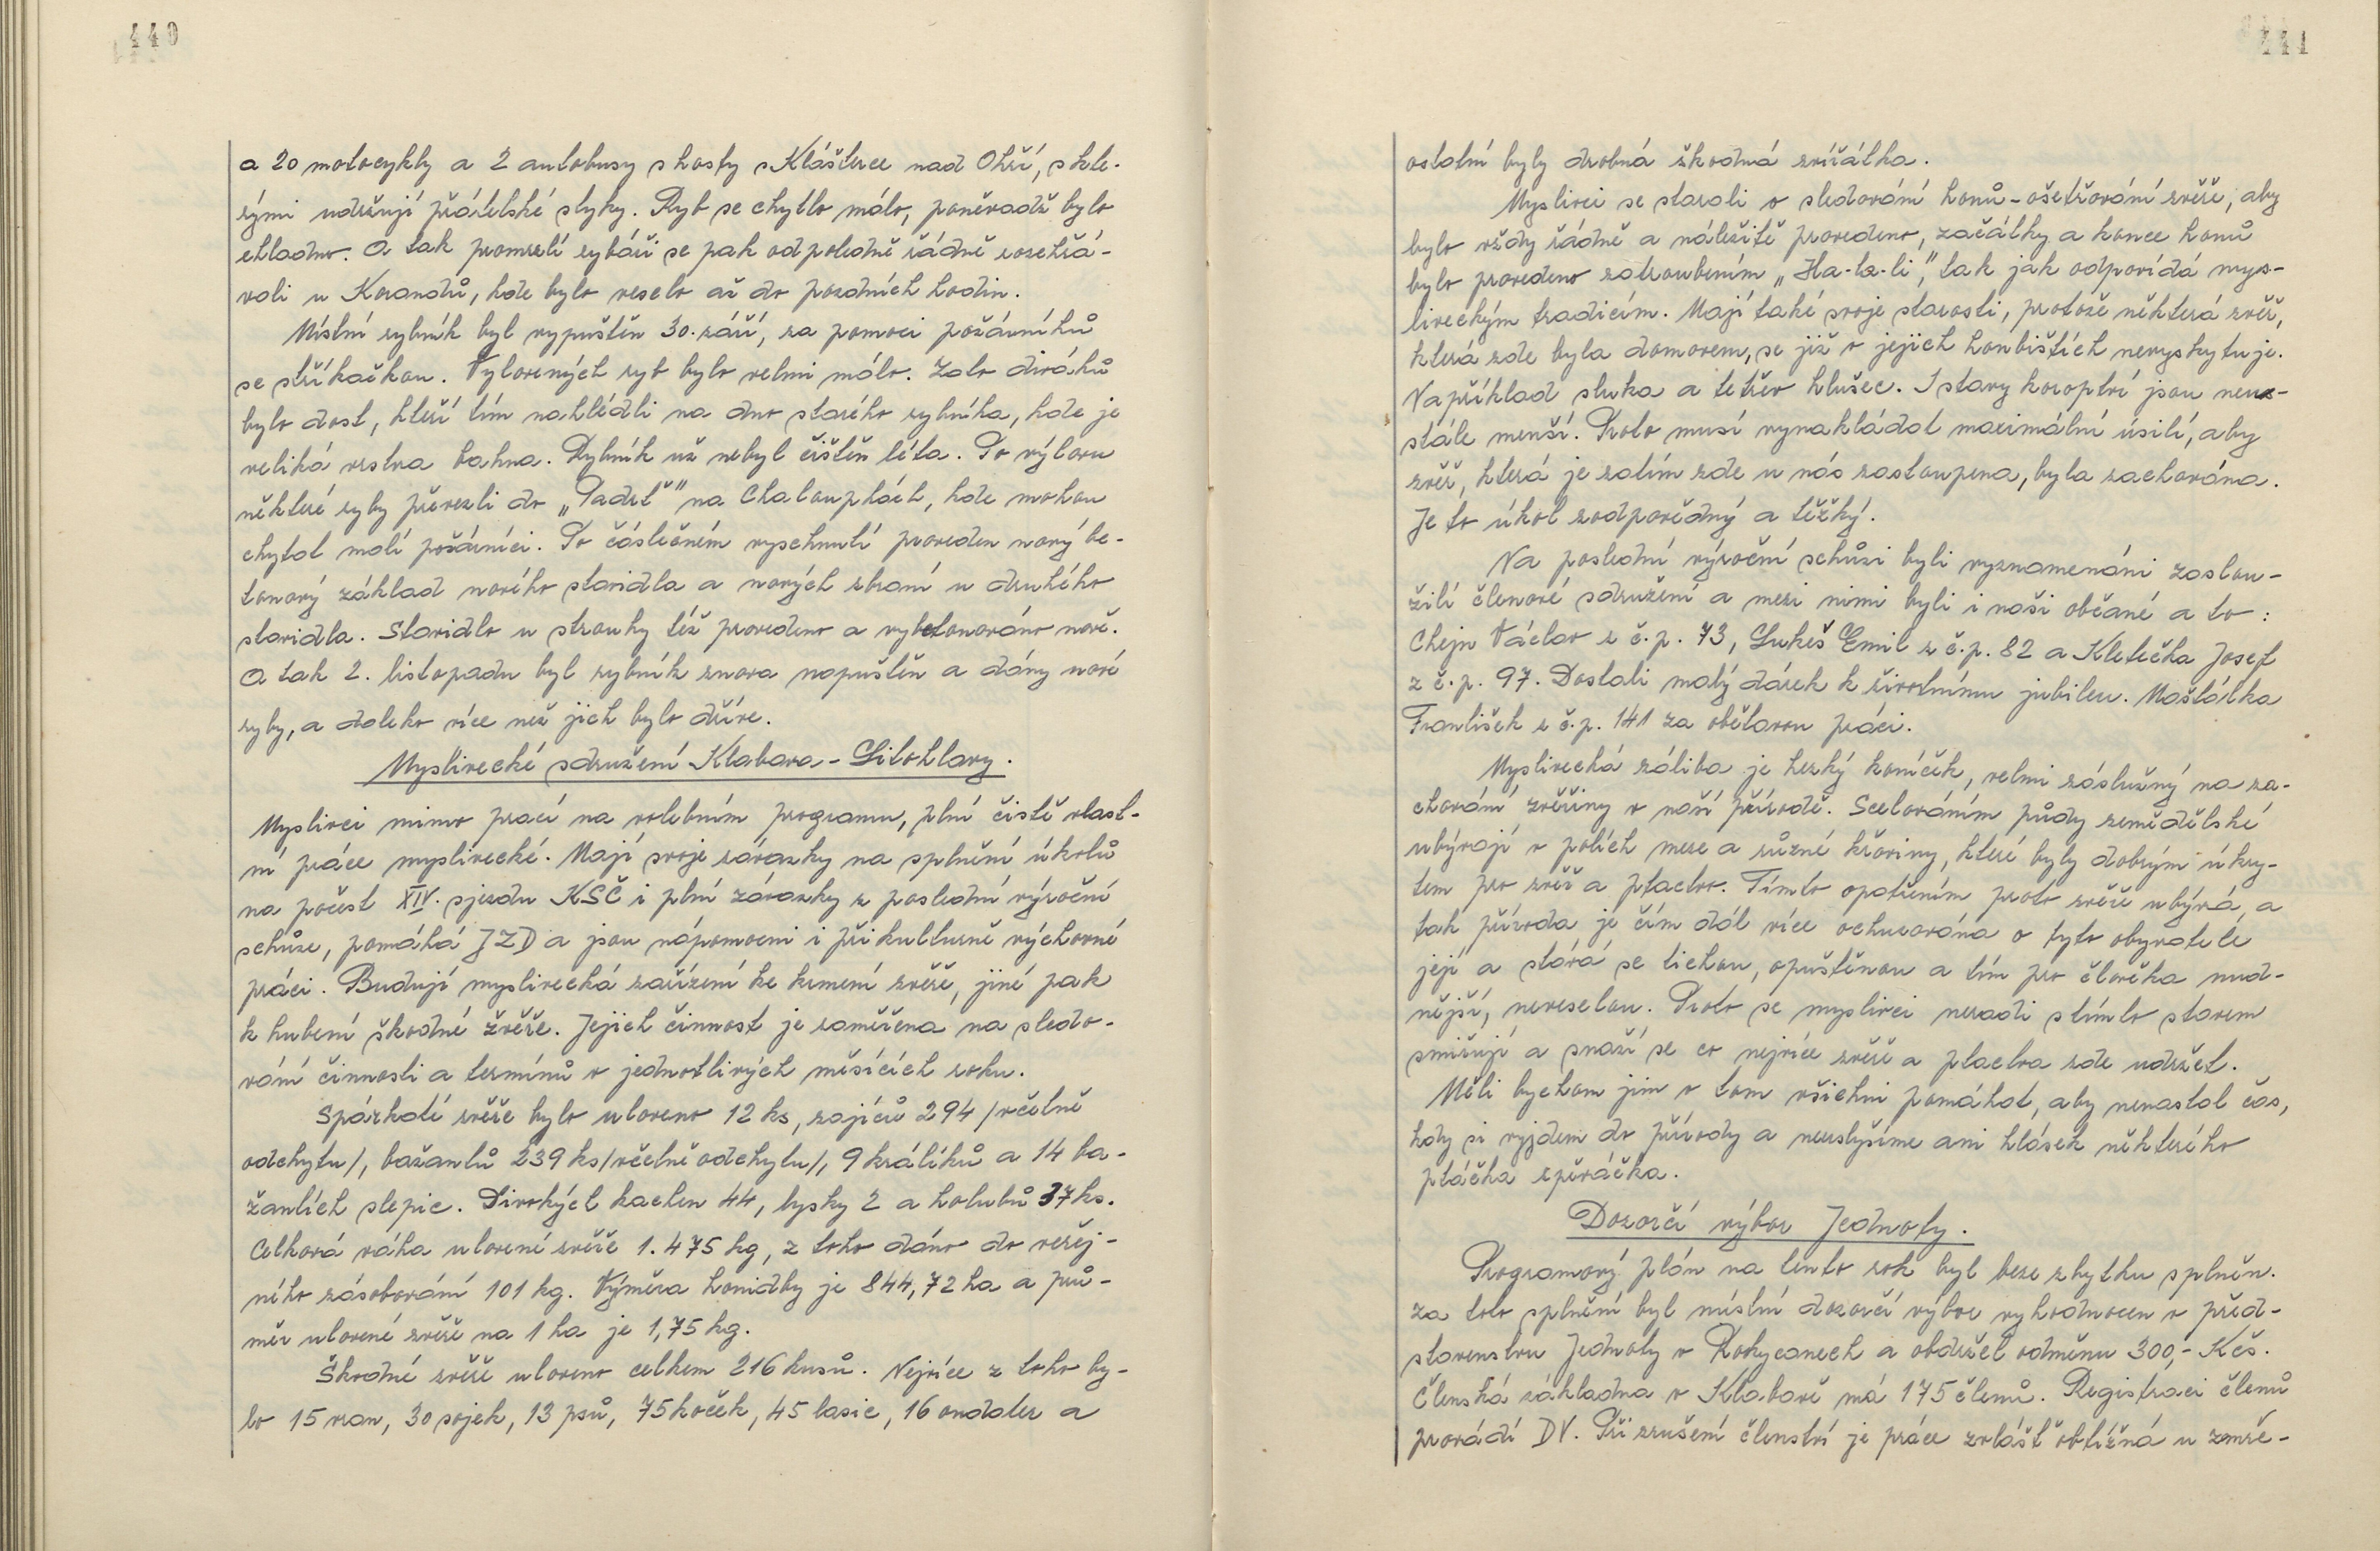 440
a 20 motocykly a 2 autobusy s hosty s Klášterce nad Ohří, s kte-
rými udržují přátelské styky. Ryb se chytlo málo, poněvadž bylo
chladno. A tak promrzlí rybáři se pak odpoledně řádně rozehřá-
vali u Korandů, kde bylo veselo až do pozdních hodin.
Místní rybník byl vypuštěn 30. září, za pomoci požárníků
se stříkačkou. Vylovených ryb bylo velmi málo. Zato diváků
bylo dost, kteří tím nahlédli na dno starého rybníka, kde je
veliká vrstva bahna. Rybník už nebyl čištěn léta. Po výlovu
některé ryby převezli do „Padrť" na Chaloupkách, kde mohou
chytat malí požárníci. Po částečném vyschnutí proveden nový be-
tonový základ nového stavidla a nových zbraní u druhého
stavidla. Stavidlo u strouhy též provedeno a vybetonováno nově.
A tak 2. listopadu byl rybník znova napuštěn a dány nové
ryby, a daleko více než jich bylo dříve.
Myslivecké sdružení Klabava - Litohlavy.
Myslivci mimo prací na volebním programu, plní čistě vlast-
ní práce myslivecké. Mají svoje závazky na splnění úkolů
na počest XIV. sjezdu KSČ i plní závazky z poslední výroční
schůze, pomáhá JZD a jsou nápomocni i při kulturně výchovné
práci. Budují myslivecká zařízení ke krmení zvěře, jiné pak
k hubení škodné zvěře. Jejich činnost je zaměřena na sledo-
vání činnosti a termínů v jednotlivých měsících roku.
Spárkaté zvěře bylo uloveno 12 ks, zajíců 294 /včetně
odchytu/, bažantů 239 ks /včetně odchytu/, 9 králíků a 14 ba-
žantích slepic. Divokých kachen 44, lysky 2 a holubů 37 ks.
Celková váha ulovené zvěře 1.475 kg, z toho dáno do veřej-
ného zásobování 101 kg. Výměra honidby je 844,72 ha a prů-
měr ulovené zvěře na 1 ha je 1,75 kg.
Škodné zvěře uloveno celkem 216 kusů. Nejvíce z toho by-
lo 15 vran, 30 sojek, 13 psů, 75 koček, 45 lasic, 16 ondater a
441
ostatní byly drobná škodná zvířátka.
Myslivci se starali o sledování honů - ošetřování zvěře, aby
bylo vždy řádně a náležitě provedeno, začátky a konce honů
bylo provedeno zatroubením „Ha-la-li," tak jak odpovídá mys-
liveckým tradicím. Mají také svoje starosti, protože některá zvěř,
která zde byla domovem, se již v jejich honbištích nevyskytuje.
Například sluka a tetřev hlušec. I stavy koroptví jsou neu-
stále menší. Proto musí vynakládat maximální úsilí, aby
zvěř, která je zatím zde u nás zastoupena, byla zachována.
Je to úkol zodpovědný a těžký.
Na poslední výroční schůzi byli vyznamenáni zaslou-
žilí členové sdružení a mezi nimi byli i naši občané a to:
Chejn Václav z č.p. 73, Lukeš Emil z č.p. 82 a Kletečka Josef
z č.p. 97. Dostali malý dárek k životnímu jubileu. Maštálka
František z č.p. 141 za obětavou práci.
Myslivecká záliba je hezký koníček, velmi záslužný na za-
chování zvěřiny v naší přírodě. Scelováním půdy zemědělské
ubývají v polích meze a různé křoviny, které byly dobrým úkry-
tem pro zvěř a ptactvo. Tímto opatřením proto zvěře ubývá, a
tak příroda je čím dál více ochuzována o tyto obyvatele
její a stává se tichou, opuštěnou a tím pro člověka nud-
nější, neveselou. Proto se myslivci neradi s tímto stavem
smiřují a snaží se co nejvíce zvěře a ptactva zde udržet.
Měli bychom jim v tom všichni pomáhat, aby nenastal čas,
kdy si vyjdem do přírody a neuslyšíme ani hlásek některého
ptáčka zpěváčka.
Dozorčí výbor Jednoty.
Programový plán na tento rok byl beze zbytku splněn.
za toto splnění byl místní dozorčí výbor vyhodnocen v před-
stavenstvu Jednoty v Rokycanech a obdržel odměnu 300,- Kčs.
Členská základna v Klabavě má 175 členů. Registraci členů
provádí DV. Při zrušení členství je práce zvlášť obtížná u zemře-